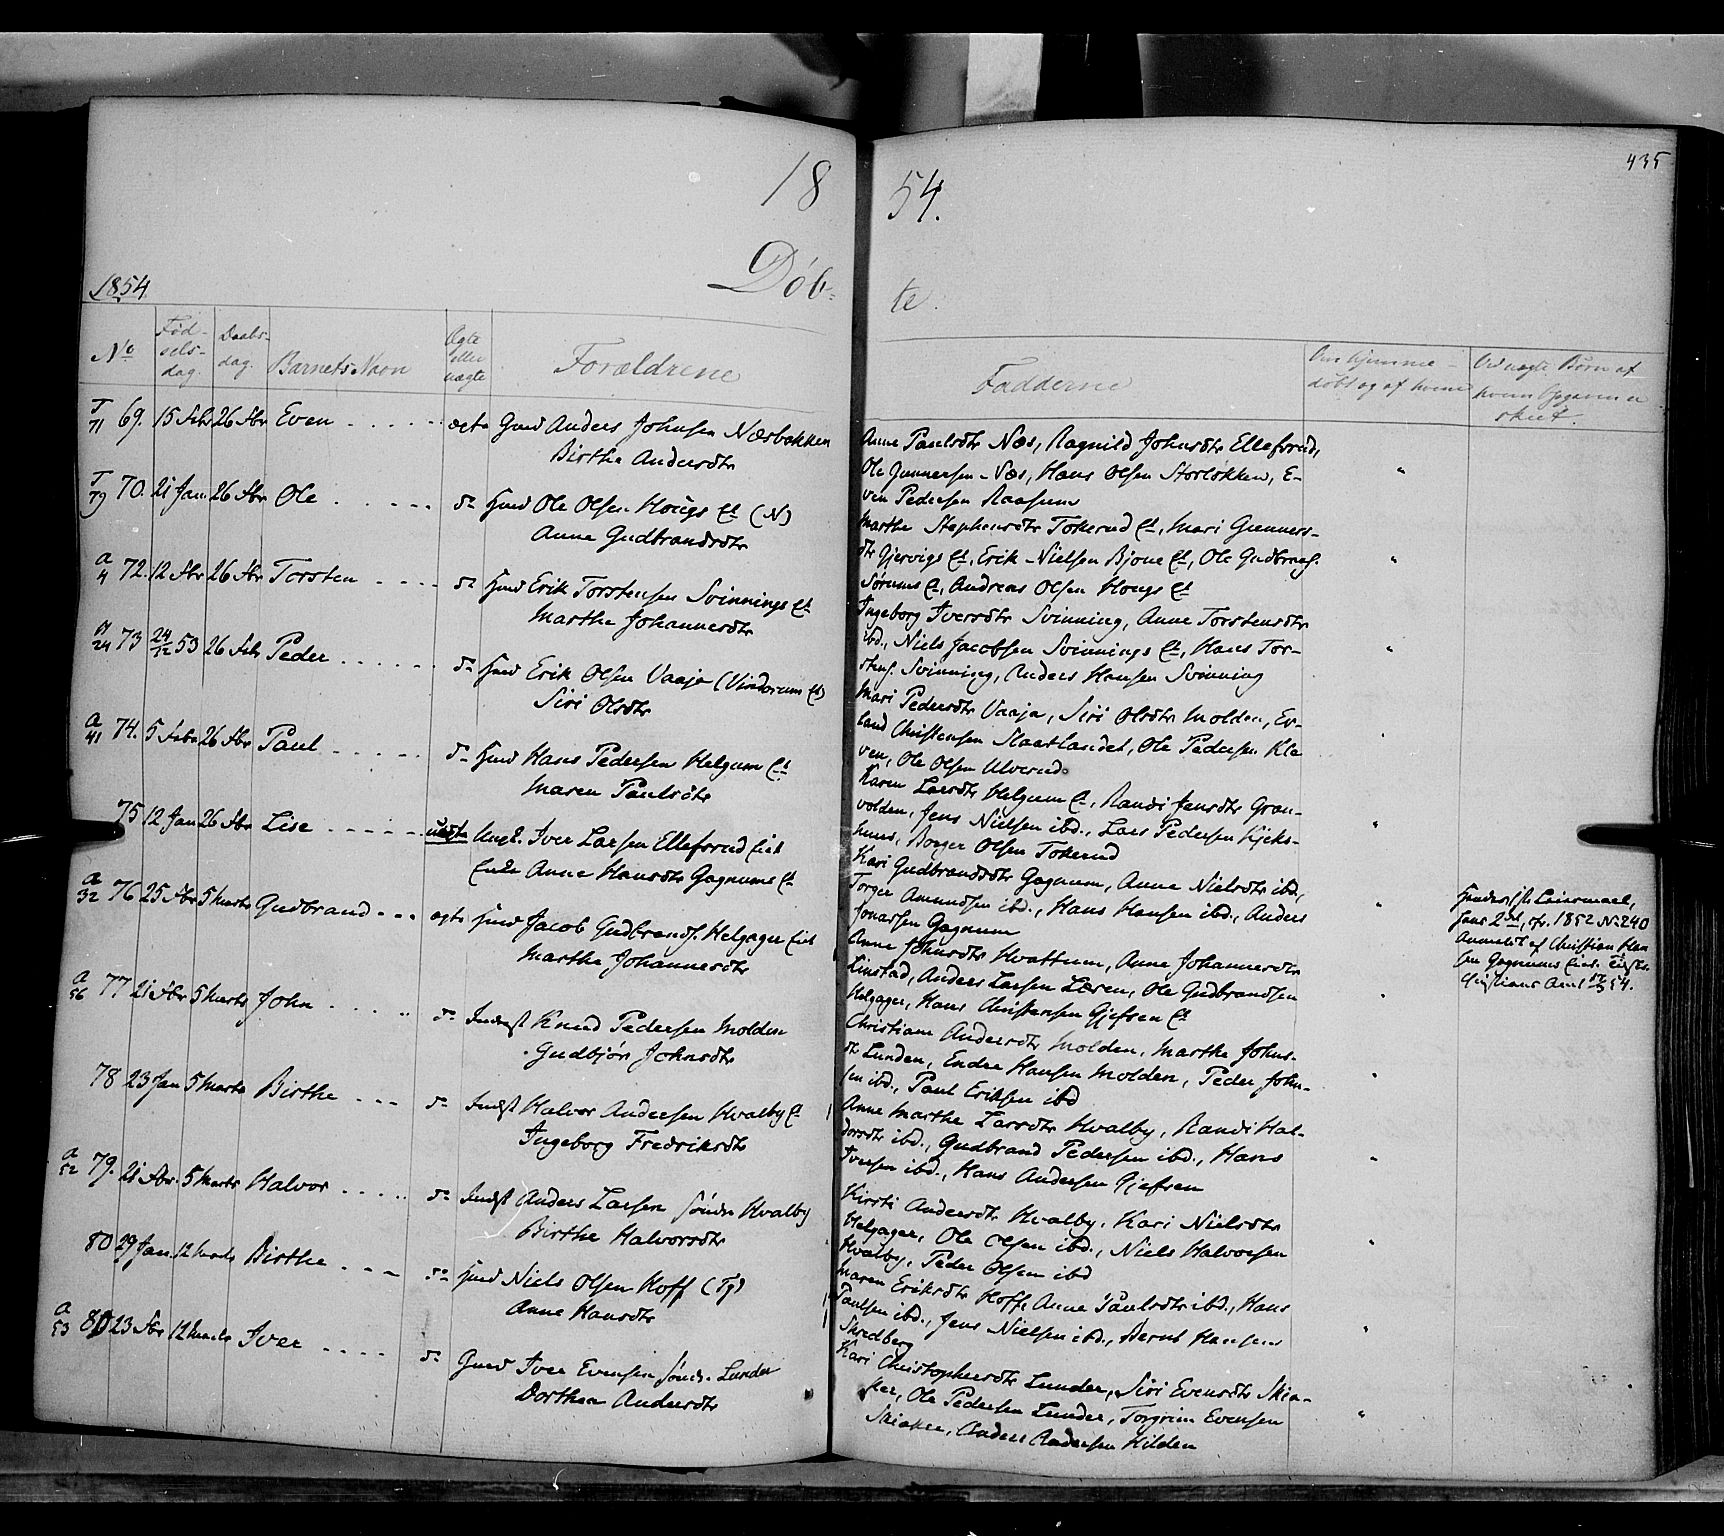 435
18
54.
1854
Døb-
te.
No
Fød-
sels-
dag.
Daabs-
dag.
Barnets Navn
Ægte
eller
uægte
Forældrene
Fadderne
Om hjemme-
døbt og af hvem
Ved uægte Børn af
hvem Opgaven er
skeet.
T
71 69. 15 Febr 26 Fbr Even ægte Gmd Anders Johnsen Næsbakken
Birthe Andersdtr
Anne Paulsdtr Næs, Ragnild Johnsdtr Ellefsrud,
Ole Gunnersen Næs, Hans Olsen Storløkken, E-
ven Pedersen Raasum
T
79 70. 21 Jan 26 Fbr Ole do Hmd Ole Olsen Hougs Et (N)
Anne Gudbrandsdtr
Marthe Stephensdtr Tokerud Et, Mari Gunners-
dtr Gjervigs Et, Erik Nielsen Bjone Et, Ole Gudbrands.
Sørums Et, Andreas Olsen Hougs Et
A
4 72. 12 Fbr 26 Fbr Torsten do Hmd Erik Torstensen Svinnings Et
Marthe Johannesdtr
Ingeborg Iversdtr Svinning, Anne Torstensdtr
ibd., Niels Jacobsen Svinnings Et, Hans Tor-
stens. Svinning, Anders Hansen Svinning
A
24 73 24/12 53 26 Febr Peder do Hmd Erik Olsen Vaaja (Vindorum Et)
Siri Olsdtr
Mari Pedersdtr Vaaja, Siri Olsdtr Molden, Er-
land Christensen Slaatlandet, Ole Pedersen Kle-
ven, Ole Olsen Ulverud
A
41 74. 5 Febr 26 Fbr Paul do Hmd Hans Pedersen Helgum Et
Maren Paulsdtr
Karen Larsdtr Helgum Et, Randi Jensdtr Gran-
volden, Jens Nielsen ibd., Lars Pedersen Kjeks-
huus, Borger Olsen Tokerud
75 12 Jan 26 Fbr Lise uægte Ungk. Iver Larsen Ellefsrud Eiet
Enke Anne Hansdtr Gagnums Et
Kari Gudbrandsdtr Gagnum, Anne Nielsdtr ibd,
Torger Amundsen ibd., Hans Hansen ibd., Anders
Jonassen Gagnum
Hendes 1ste Leiermaal,
hans 2det, cfr. 1852 No 240
Anmeldt af Christian Han
sen Gagnums
Christians Amt 54.
A
32 76 25 Fbr 5 Marts Gudbrand ægte Hmd Jacob Gudbrands. Helgager Eiet
Marthe Johannesdtr
Anne Johnsdtr Hvattum, Anne Johannesdtr
Linstad, Anders Larsen Læren, Ole Gudbrandsen
Helgager, Hans Christensen Gjefsen Et
A
56 77 21 Fbr 5 Marts John do Inderst Knud Pedersen Molden
Gudbjør Johnsdtr
Christiane Andersdtr Molden, Marthe Johns-
dtr Lunden, Endre Hansen Molden, Peder John-
sen ibd., Paul Eriksen ibd
78 23 Jan 5 Marts Birthe do Indst Halvor Andersen Hvalby Et
Ingeborg Fredriksdtr
Anne Marthe Larsdtr Hvalby, Randi Hal-
vorsdtr ibd., Gudbrand Pedersen ibd., Hans
Iversen ibd., Hans Andersen Gjefsen
A
52 79. 21 Fbr. 5 Marts Halvor do Indst Anders Larsen søndre Hvalby
Birthe Halvorsdtr
Kirsti Andersdtr Hvalby, Kari Nielsdtr
Helgager, Ole Olsen ibd., Niels Halvorsen
Hvalby, Peder Olsen ibd
80 29 Jan 12 Marts Birthe do Hmd Niels Olsen Hoff (Tj)
Anne Hansdtr
Maren Eriksdtr Hoff, Anne Paulsdtr ibd., Hans
Paulsen ibd., Jens Nielsen ibd., Bernt Hansen
Skredberg
A
53 81 23 Fbr 12 Marts Iver do Gmd Iver Evensen sønd. Lunder
Dorthea Andersdtr
Kari Christophersdtr Lunder, Siri Evensdtr Skia-
ker, Ole Pedersen Lunder, Torgrim Evensen
Skiaker, Anders Andersen Kilden